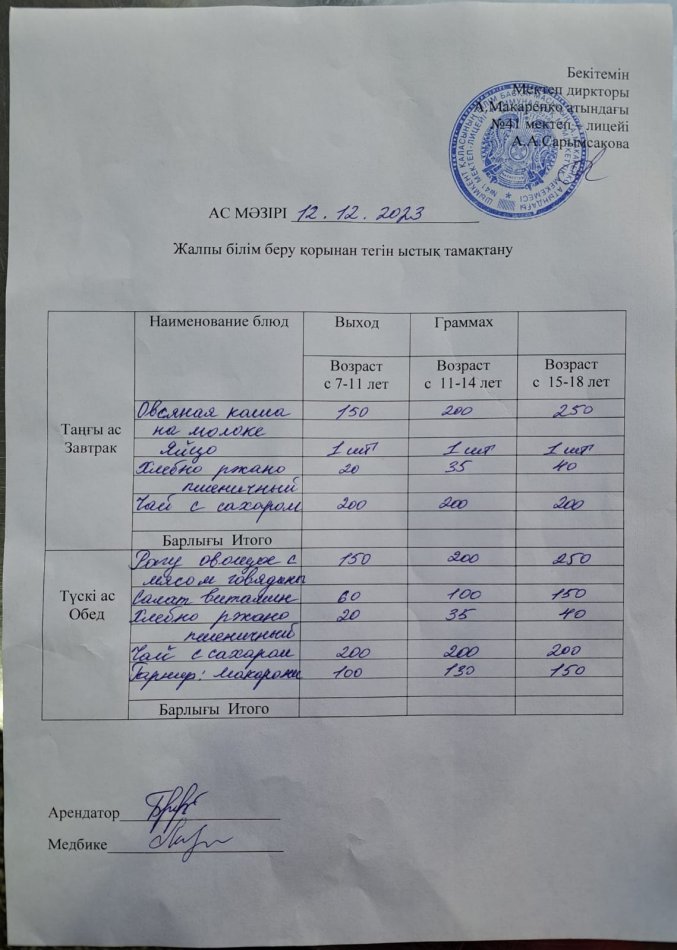 Бекітемін
Мектеп диркторы
А.Макаренко атындағы
№41 мектеп - лицейі
А.А.Сарымсақова
АС МӘЗІРІ 12.12.2023
Жалпы білім беру қорынан тегін ыстық тамақтану
Наименование блюд Выход Граммах
Возраст Возраст Возраст
с 7-11 лет с 11-14 лет с 15-18 лет
Таңғы ас
Завтрак
Овсяная каша 150 200 250
на молоке
Яйцо 1 шт 1 шт 1 шт
Хлебно ржано 20 35 40
пшеничный
Чай с сахаром 200 200 200
Барлығы Итого
Түскі ас
Обед
Рагу овощное с 150 200 250
мясом говядины
Салат витамин 60 100 150
Хлебно ржано 20 35 40
пшеничный
Чай с сахаром 200 200 200
Гарнир: макароны 100 130 150
Барлығы Итого
Арендатор
Медбике